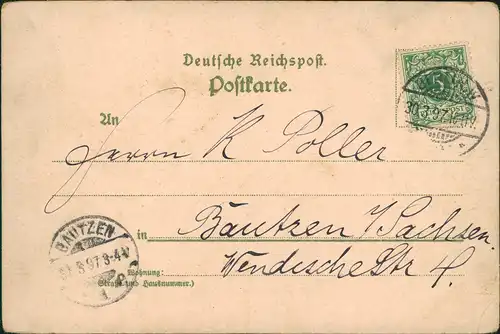 Deutsche Reichspost.
Postkarte.
5
30.3.97.
An
Herrn K Poller
BAUTZEN
3.97.3-4.V
in
Bautzen i/Sachsen.
Wohnung:
(Straße und Hausnummer.)
Wendische Str 4.